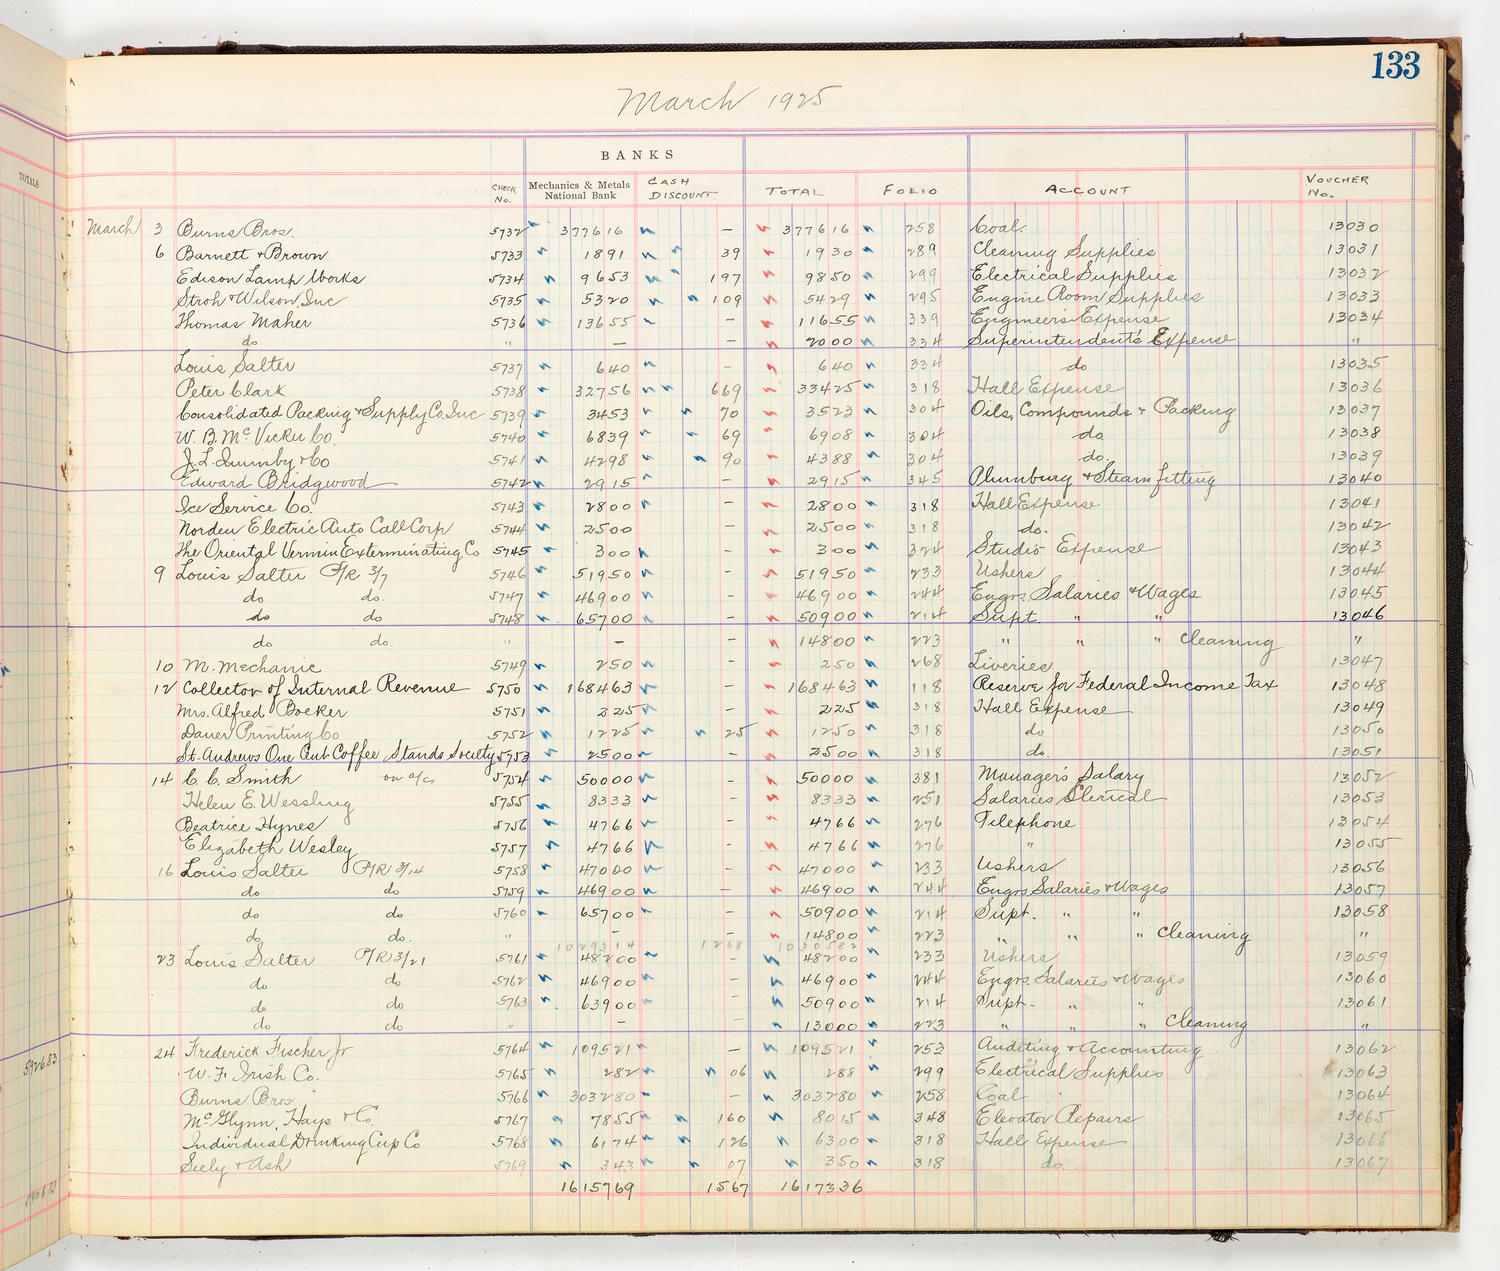 TOTALS
133
March 1925
BANKS
CHECK No. Mechanics & Metals National Bank CASH DISCOUNT TOTAL FOLIO ACCOUNT VOUCHER No.
March 3 Burns Bros. 5732 377616 — 377616 258 Coal. 13030
6 Barnett & Brown 5733 1891 39 1930 289 Cleaning Supplies 13031
Edison Lamp Works 5734 9653 197 9850 299 Electrical Supplies 13032
Stroh & Wilson, Inc 5735 5320 109 5429 295 Engine Room Supplies 13033
Thomas Maher 5736 13655 — 11655 339 Engineer's Expense 13034
do " — — 2000 334 Superintendent's Expense "
Louis Salter 5737 640 — 640 334 do 13035
Peter Clark 5738 32756 669 33425 318 Hall Expense 13036
Consolidated Packing & Supply Co. Inc 5739 3453 70 3523 304 Oils, Compounds & Packing 13037
W. B. Mc Vicker Co. 5740 6839 69 6908 304 do 13038
J. L. Quimby & Co 5741 4298 90 4388 304 do. 13039
Edward Bridgwood 5742 2915 — 2915 345 Plumbing & Steam fitting 13040
Ice Service Co. 5743 2800 — 2800 318 Hall Expense 13041
Norden Electric Auto Call Corp 5744 2500 — 2500 318 do. 13042
The Oriental Vermin Exterminating Co 5745 300 — 300 324 Studio Expense 13043
9 Louis Salter P/R 3/7 5746 51950 — 51950 233 Ushers 13044
do do. 5747 46900 — 46900 244 Engrs. Salaries & Wages 13045
do do 5748 65700 — 50900 214 Supt. " " 13046
do do. " — — 14800 223 " " " Cleaning "
10 M. Mechanic 5749 250 — 250 268 Liveries 13047
12 Collector of Internal Revenue 5750 168463 — 168463 118 Reserve for Federal Income Tax 13048
Mrs. Alfred Bocker 5751 225 — 225 318 Hall Expense 13049
Dauer Printing Co 5752 1225 25 1250 318 do 13050
St. Andrews One Cent Coffee Stands Society 5753 2500 — 2500 318 do. 13051
14 C. C. Smith on a/c 5754 50000 — 50000 381 Manager's Salary 13052
Helen E. Wessling 5755 8333 — 8333 251 Salaries Clerical 13053
Beatrice Hynes 5756 4766 — 4766 276 Telephone 13054
Elizabeth Wesley 5757 4766 — 4766 276 " 13055
16 Louis Salter P/R 3/14 5758 47000 — 47000 233 Ushers 13056
do do 5759 46900 — 46900 244 Engrs. Salaries & Wages 13057
do do 5760 65700 — 50900 214 Supt. " " 13058
do do. " — — 14800 223 " " " Cleaning "
1029314 1268 1030582
23 Louis Salter P/R 3/21 5761 48200 — 48200 233 Ushers 13059
do do 5762 46900 — 46900 244 Engrs. Salaries & Wages 13060
do do 5763 63900 — 50900 214 Supt. " " 13061
do do " — — 13000 223 " " " Cleaning "
24 Frederick Fischer Jr 5764 109521 — 109521 253 Auditing & Accounting 13062
W. F. Irish Co. 5765 282 06 288 299 Electrical Supplies 13063
Burns Bros 5766 303280 — 303280 258 Coal 13064
McGlynn, Hays & Co. 5767 7855 160 8015 348 Elevator Repairs 13065
Individual Drinking Cup Co 5768 6174 126 6300 318 Hall Expense 13066
Seely & Ash 5769 343 07 350 318 do. 13067
1615769 1567 1617336
592683